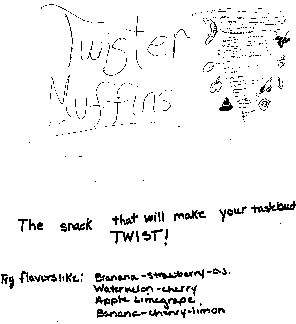 Twister
Muffins
The snack that will make your tastebud
TWIST!
Try flavors like: Banana-Strawberry-o.j.
Watermelon-cherry
Apple Limegrape,
Banana-cherry-limon